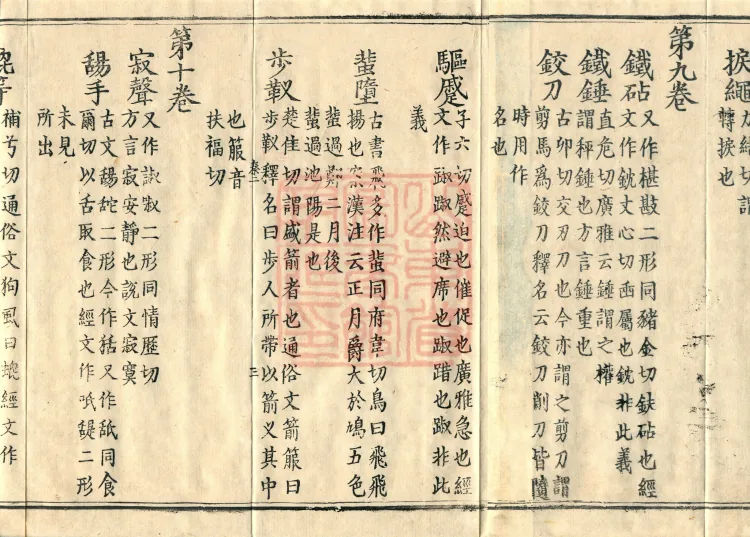 捩繩力結切謂
轉捩也
第九卷
鐵砧又作椹㪛二形同豬金切鈇砧也經
文作鈂文心切臿屬也鈂非此義
鐵錘直危切廣雅云錘謂之權
謂秤錘也方言錘重也
鉸刀古卯切交刃刀也今亦謂之剪刀謂
剪馬爲鉸刀釋名云鉸刀削刀皆隨
時用作
名也
驅蹙子六切蹙迫也催促也廣雅急也經
文作踧踧然避席也踧踖也踧非此
義
蜚墮古書飛多作蜚同府韋切鳥曰飛飛
揚也案漢注云正月爵大於鳩五色
蜚過鄭二月後
蜚過池陽是也
步靫楚佳切謂盛箭者也通俗文箭箙曰
步靫釋名曰步人所帶以箭叉其中
卷二 三
也箙音
扶福切
第十卷
寂聲又作諔二形同情歷切
方言寂安靜也說文寂寞
舓手古文舓二形今作狧又作舐同食
爾切以舌取食也經文作二形
未見
所出
等補兮切通俗文狗虱曰螕經文作